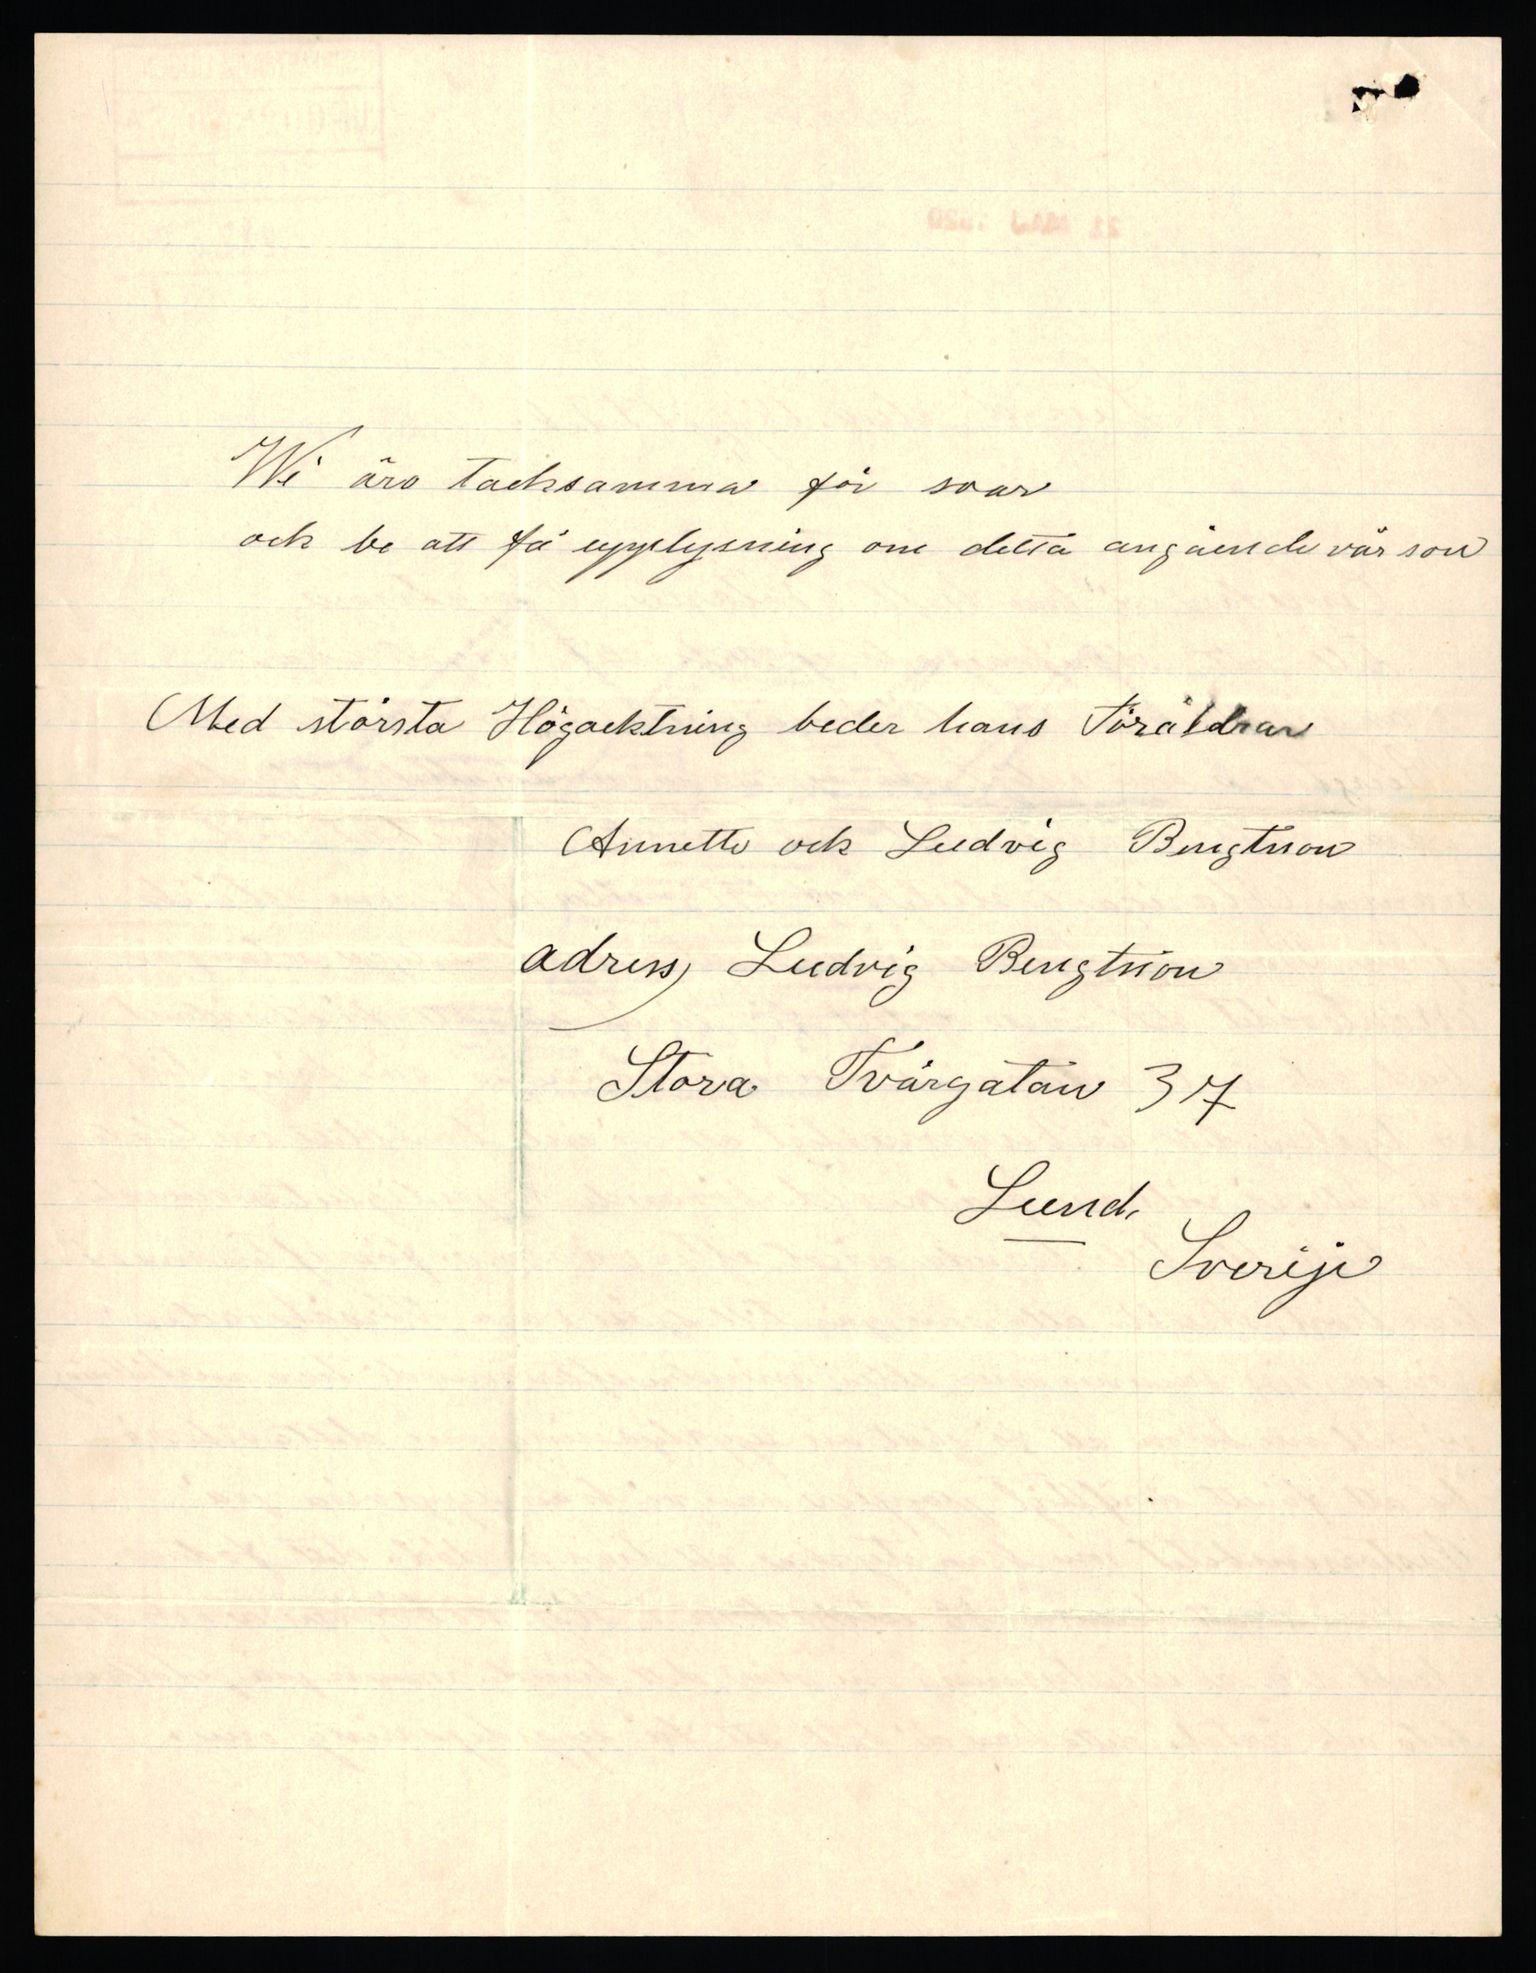 Wi äro tacksamma för svar
och be att få upplysning om detta angående vår son
Med största Högacktning beder hans Föräldrar
Annette och Ludvig Bengtsson
adress, Ludvig Bengtsson
Stora Tvärgatan 37
Lund.
Sverije